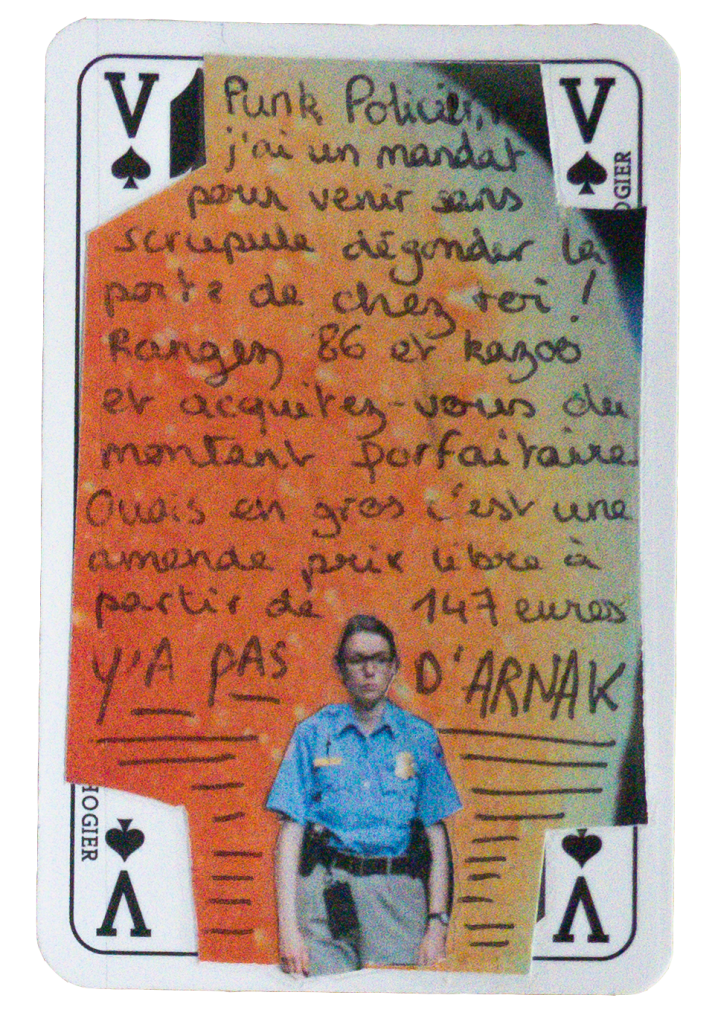 V
V
OGIER
Punk Policier,
j'ai un mandat
pour venir sans
scrupule dégonder la
porte de chez toi !
Rangez 86 et kazoo
et acquitez-vous du
montant forfaitaire.
Ouais en gros c'est une
amende prix libre à
partir de 147 euros
Y'A PAS D'ARNAK
HOGIER
V
V